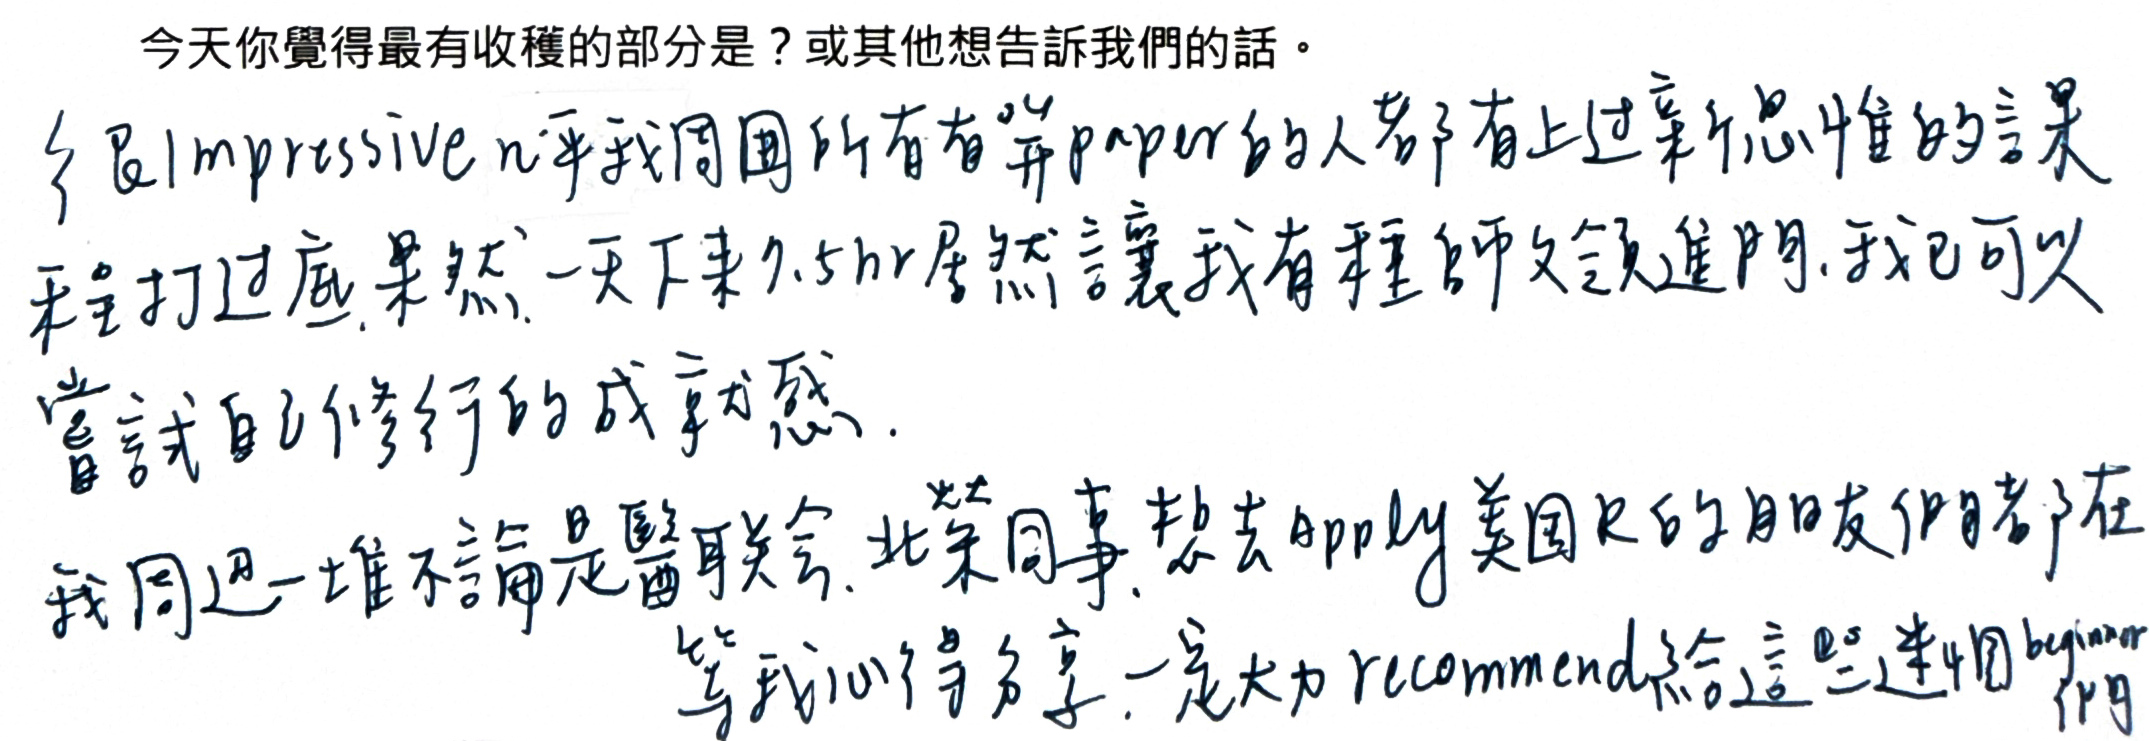 今天你覺得最有收穫的部分是？或其他想告訴我們的話。
很Impressive n乎我周圍所有有發paper的人都有上过新思惟的課
程打过底.果然.一天下来7.5hr居然讓我有種師父領進門.我已可以
嘗試自己修行的成就感.
我周邊一堆不論是醫联会.北榮同事.想去apply美国R的朋友們都在
等我心得分享.一定大力recommend給這些迷惘beginner
們